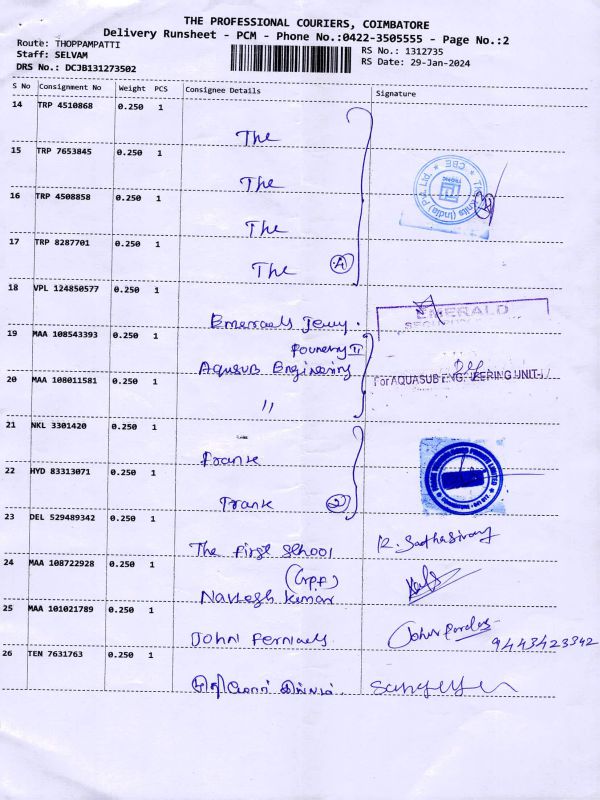 THE PROFESSIONAL COURIERS, COIMBATORE
Delivery Runsheet - PCM - Phone No.:0422-3505555 - Page No.:2
Route: THOPPAMPATTI
Staff: SELVAM
DRS No.: DCJB131273502
RS No.: 1312735
RS Date: 29-Jan-2024
S No Consignment No Weight PCS Consignee Details Signature
14 TRP 4510868 0.250 1
The
15 TRP 7653845 0.250 1
The
16 TRP 4508858 0.250 1
The
17 TRP 8287701 0.250 1
The 4
18 VPL 124850577 0.250 1
EMERALD
19 MAA 108543393 0.250 1
Foundry II
Aquasub Engineering
20 MAA 108011581 0.250 1
For AQUASUB ENGINEERING UNIT-
"
21 NKL 3301420 0.250 1
22 HYD 83313071 0.250 1
2
23 DEL 529489342 0.250 1
The First School
24 MAA 108722928 0.250 1
Kumar
25 MAA 101021789 0.250 1
John
9443423342
26 TEN 7631763 0.250 1